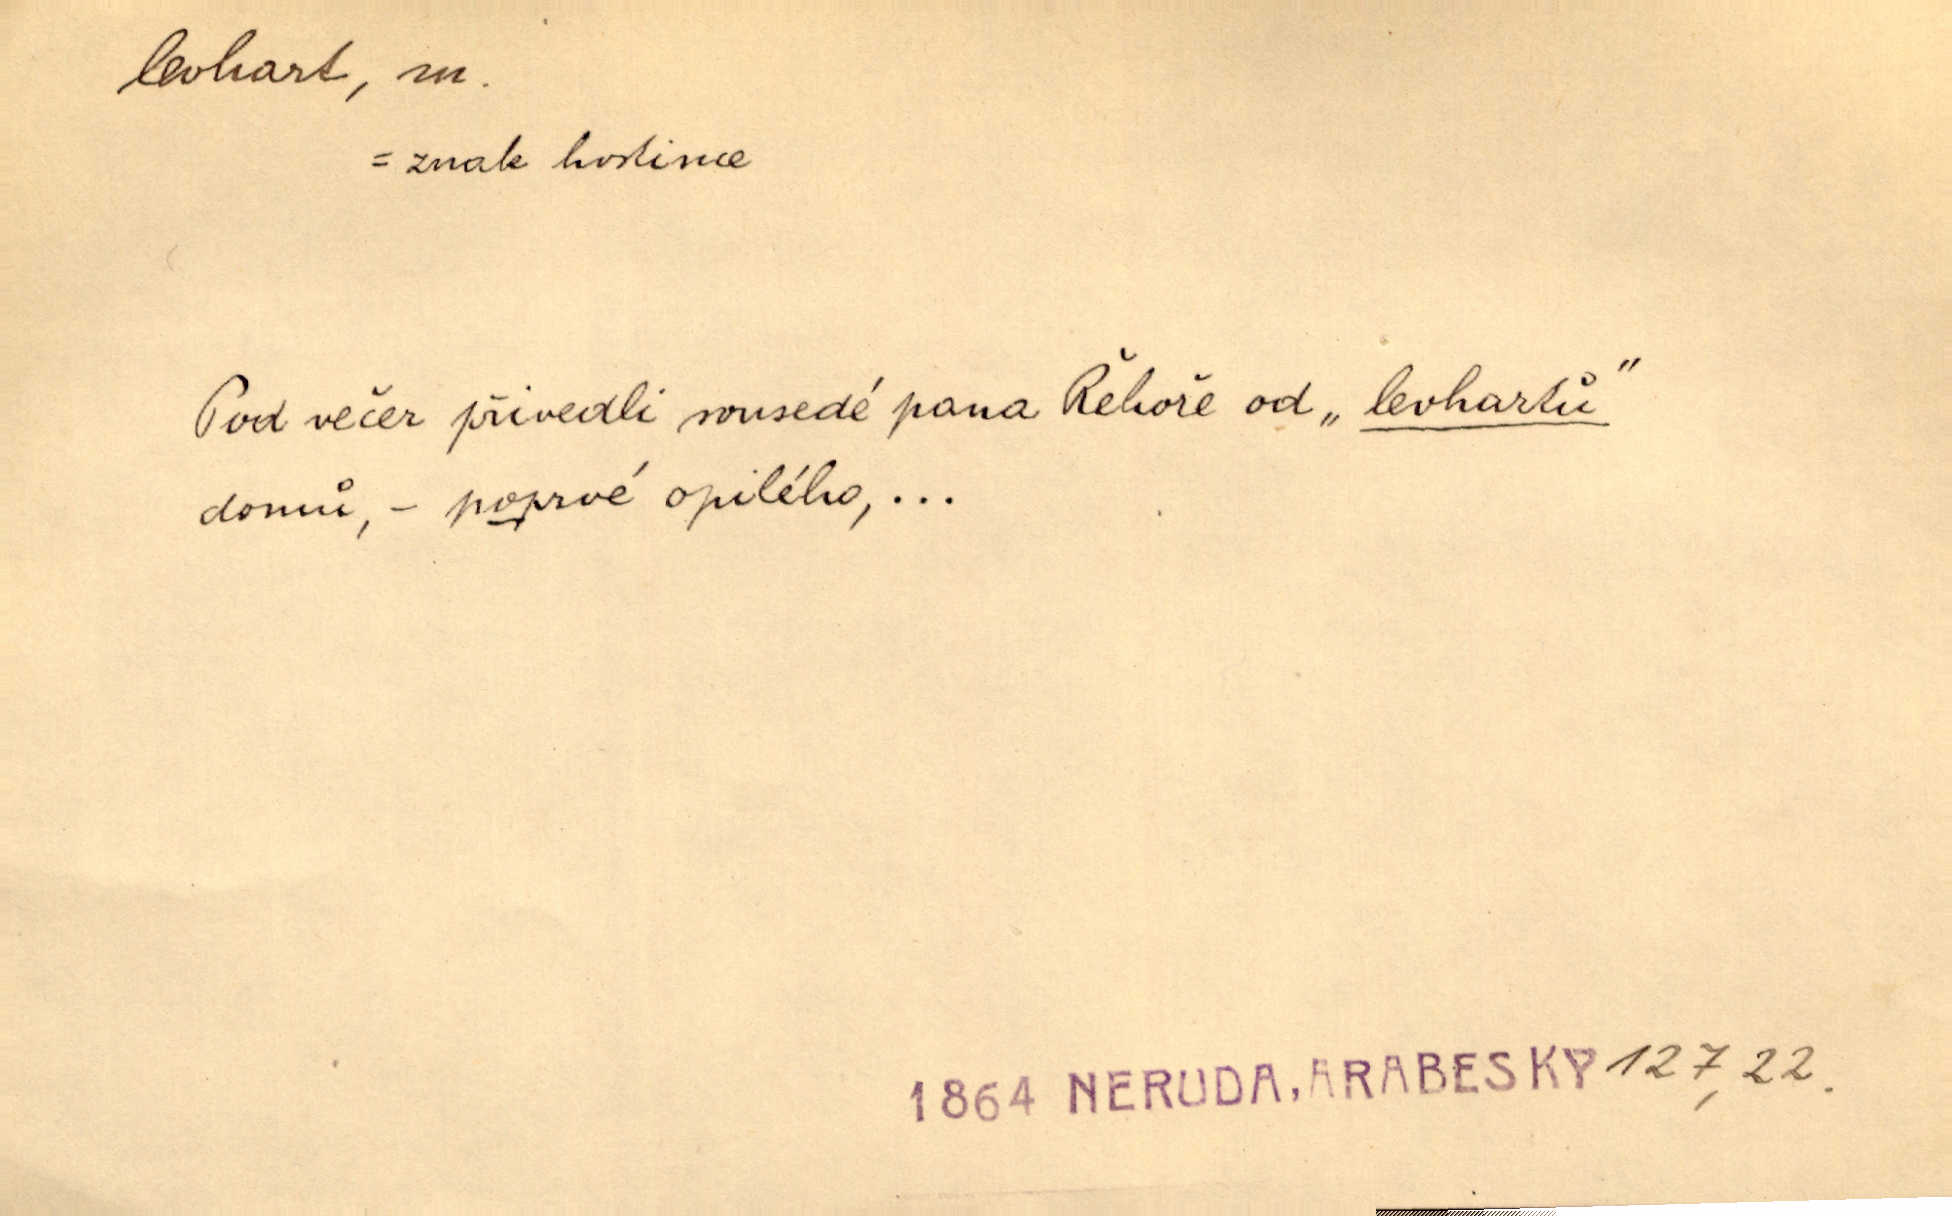 levhart, m.
= znak hostince
Pod večer přivedli sousedé pana Řehoře od „levhartů“
domů, – poprvé opilého, ...
1864 NERUDA, ARABESKY 127, 22.